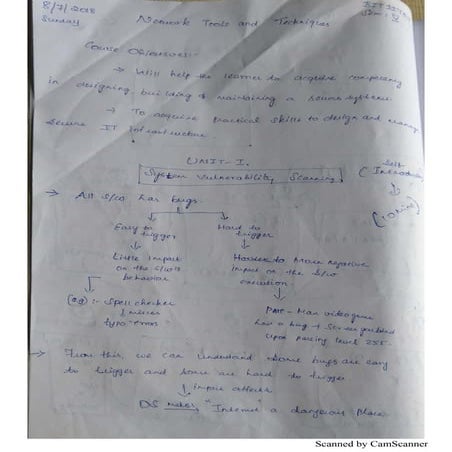 8/7/2018
Sunday
Network Tools and Techniques
Course Objectives:-
→ Will help the learner to acquire competency
in designing, building & maintaining a secure systems.
→ To acquire practical skills to design and manage
secure IT infrastructure.
UNIT-I.
System Vulnerability Scanning
(Self Introduction
→ All s/w has bugs.
Easy to trigger
Hard to trigger
Little impact
on the s/w's
behavior
to More negative
impact on the s/w
execution.
(eg) :- Spell checker
misses
typo "error"
- Man videogame
has a bug → Screen garbled
upon passing level 255.
→ From this, we can understand some bugs are easy
to trigger and some are hard to trigger
impact affects
makes "Internet" a dangerous place.
Scanned by CamScanner